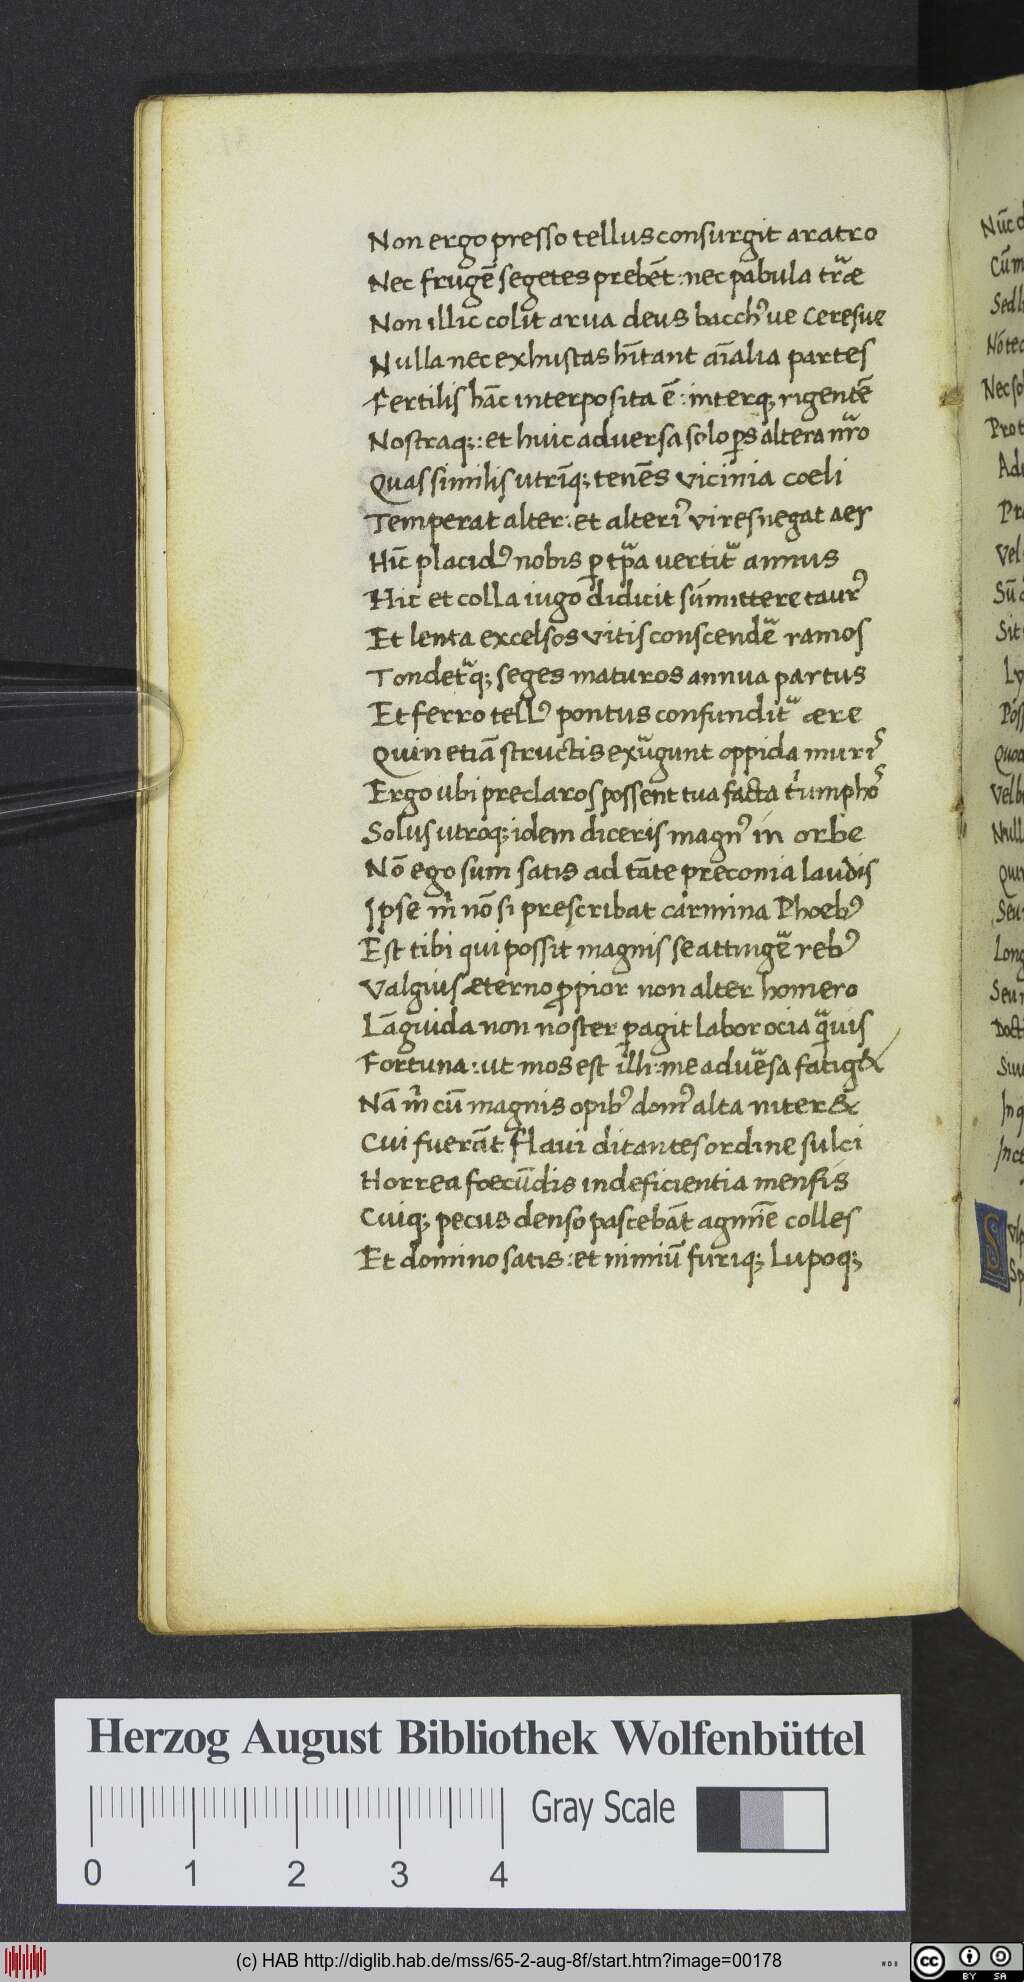 Non ergo presso tellus consurgit aratro
Nec frugē segetes prebēt: nec pabula trae
Non illic colit arua deus bacch᾿ue Ceresue
Nulla nec exhustas hītant aīalia partes
Fertilis hāc interposita ē: interq; rigentē
Nostraq;: et huic aduersa solo ꝑs altera nr̄o
Quas similis utrīq; tenēs vicinia coeli
Temperat alter: et alteri᾿ vires negat aer
Hīc placid᾿ nobis ꝑ tpa vertit annus
Hic et colla iugo didicit sūmittere taur᾿
Et lenta excelsos vitis conscendē ramos
Tondetq; seges maturos annua partus
Et ferro tell᾿ pontus confundit aere
Quin etiā structis exugunt oppida muris
Ergo ubi preclaros possent tua facta triumphos
Solus utroq; idem diceris magn᾿ in orbe
Nō ego sum satis ad tāte preconia laudis
Ipse m̄ nō si prescribat carmina Phoeb᾿
Est tibi qui possit magnis se attingē reb᾿
Valgius aeterno ꝓpior non alter homero
Lāguida non noster ꝑagit labor ocia quis
Fortuna: ut mos est illi: me aduesa fatig&
Nā m̄ cū magnis opib᾿ dom᾿ alta niter&
Cui fuerāt flaui ditantes ordine sulci
Horrea foecūdis indeficientia mensis
Cuiq; pecus denso pascebāt agmīe colles
Et domino satis: et nimiū furiq; Lupoq;
Nūc
Cūm
Sed
Nec so
Prot
Vel
Sit
Ly
Poss
Null
Seu
Long
Seu
Doct
Herzog August Bibliothek Wolfenbüttel
0 1 2 3 4
Gray Scale
(c) HAB http://diglib.hab.de/mss/65-2-aug-8f/start.htm?image=00178
cc BY SA